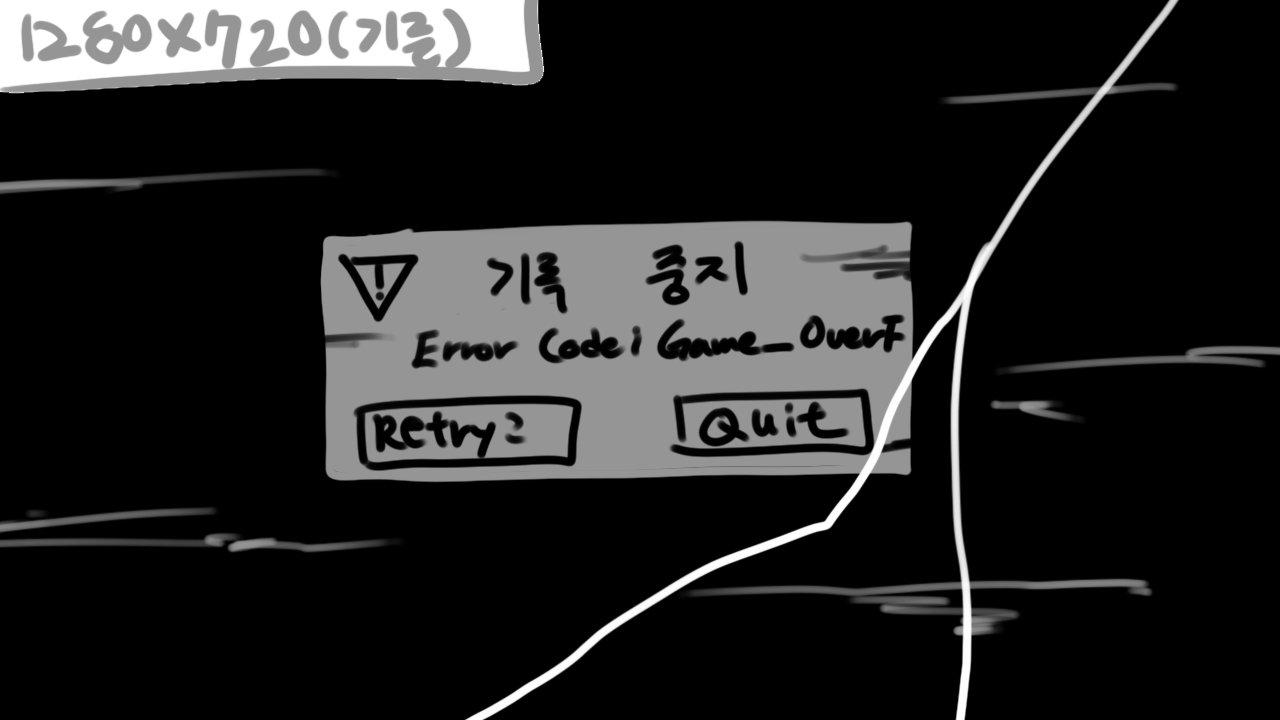 1280X720(기름)
! 기록 중지
Error Code: Game_OverF
Retry?
Quit